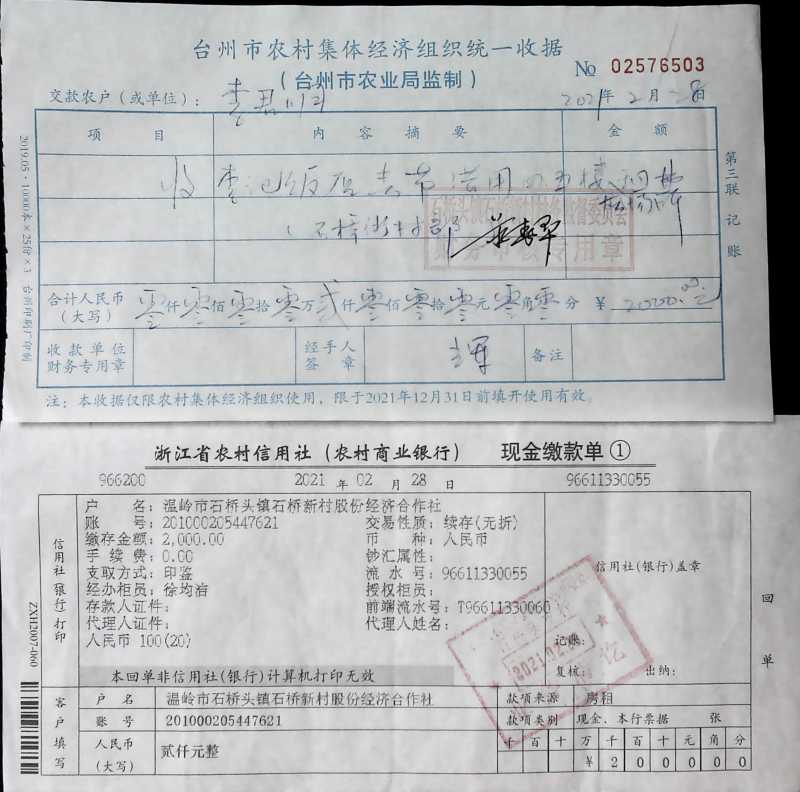 台州市农村集体经济组织统一收据
（台州市农业局监制）
№ 02576503
交款农户（或单位）： 2021年2月28日
项目 内容摘要 金额
收
合计人民币（大写） 零仟零佰零拾零万贰仟零佰零拾零元零角零分 ￥2000.00元
收款单位财务专用章 经手人签章 备注
注：本收据仅限农村集体经济组织使用，限于2021年12月31日前填开使用有效。
第三联 记账
2019.05·10000本×25份×3 台州印刷厂印制
财务审核专用章
浙江省农村信用社（农村商业银行） 现金缴款单①
966200 2021 年 02 月 28 日 96611330055
户 名：温岭市石桥头镇石桥新村股份经济合作社
账 号：201000205447621 交易性质：续存(无折)
缴存金额：2,000.00 币 种：人民币
手 续 费：0.00 钞汇属性：
支取方式：印鉴 流 水 号：96611330055
经办柜员：徐均洁 授权柜员：
存款人证件： 前端流水号：T96611330060
代理人证件： 代理人姓名：
人民币 100(20)
信用社（银行）打印
信用社(银行)盖章
记账：
2021.02.28
讫
复核： 出纳：
本回单非信用社(银行)计算机打印无效
回单
ZXH2007-060
客户填写
户 名 温岭市石桥头镇石桥新村股份经济合作社 款项来源 房租
账 号 201000205447621 款项类别 现金、本行票据 张
人民币（大写） 贰仟元整 千百十万千百十元角分
￥200000